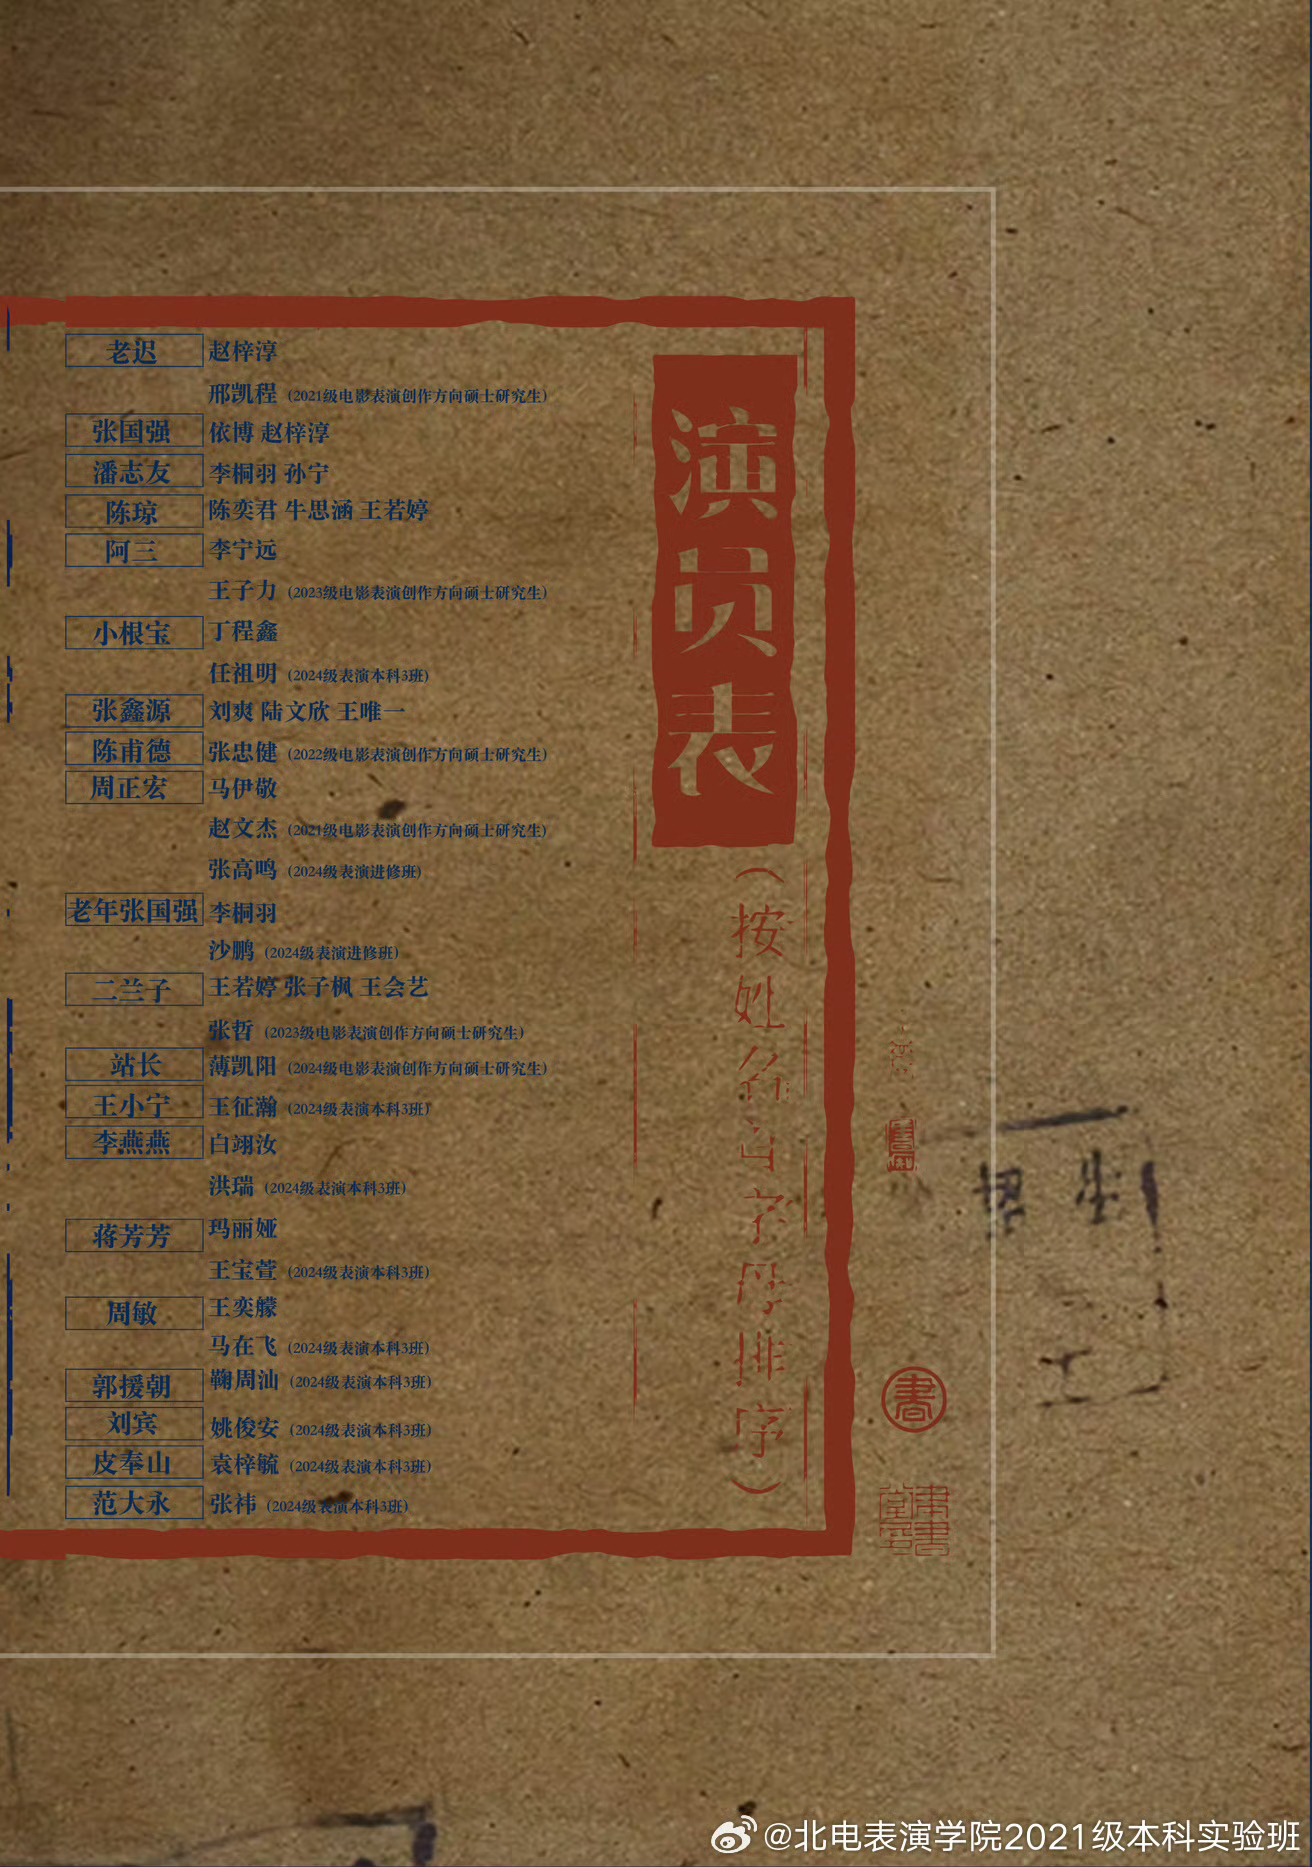 演员表
(按姓名首字母排序)
老迟 赵梓淳
邢凯程 (2021级电影表演创作方向硕士研究生)
张国强 依博 赵梓淳
潘志友 李桐羽 孙宁
陈琼 陈奕君 牛思涵 王若婷
阿三 李宁远
王子力 (2023级电影表演创作方向硕士研究生)
小根宝 丁程鑫
任祖明 (2024级表演本科3班)
张鑫源 刘爽 陆文欣 王唯一
陈甫德 张忠健 (2022级电影表演创作方向硕士研究生)
周正宏 马伊敬
赵文杰 (2021级电影表演创作方向硕士研究生)
张高鸣 (2024级表演进修班)
老年张国强 李桐羽
沙鹏 (2024级表演进修班)
二兰子 王若婷 张子枫 王会艺
张哲 (2023级电影表演创作方向硕士研究生)
站长 薄凯阳 (2024级电影表演创作方向硕士研究生)
王小宁 王征瀚 (2024级表演本科3班)
李燕燕 白翊汝
洪瑞 (2024级表演本科3班)
蒋芳芳 玛丽娅
王宝萱 (2024级表演本科3班)
周敏 王奕艨
马在飞 (2024级表演本科3班)
郭援朝 鞠周汕 (2024级表演本科3班)
刘宾 姚俊安 (2024级表演本科3班)
皮奉山 袁梓毓 (2024级表演本科3班)
范大永 张祎 (2024级表演本科3班)
書
@北电表演学院2021级本科实验班